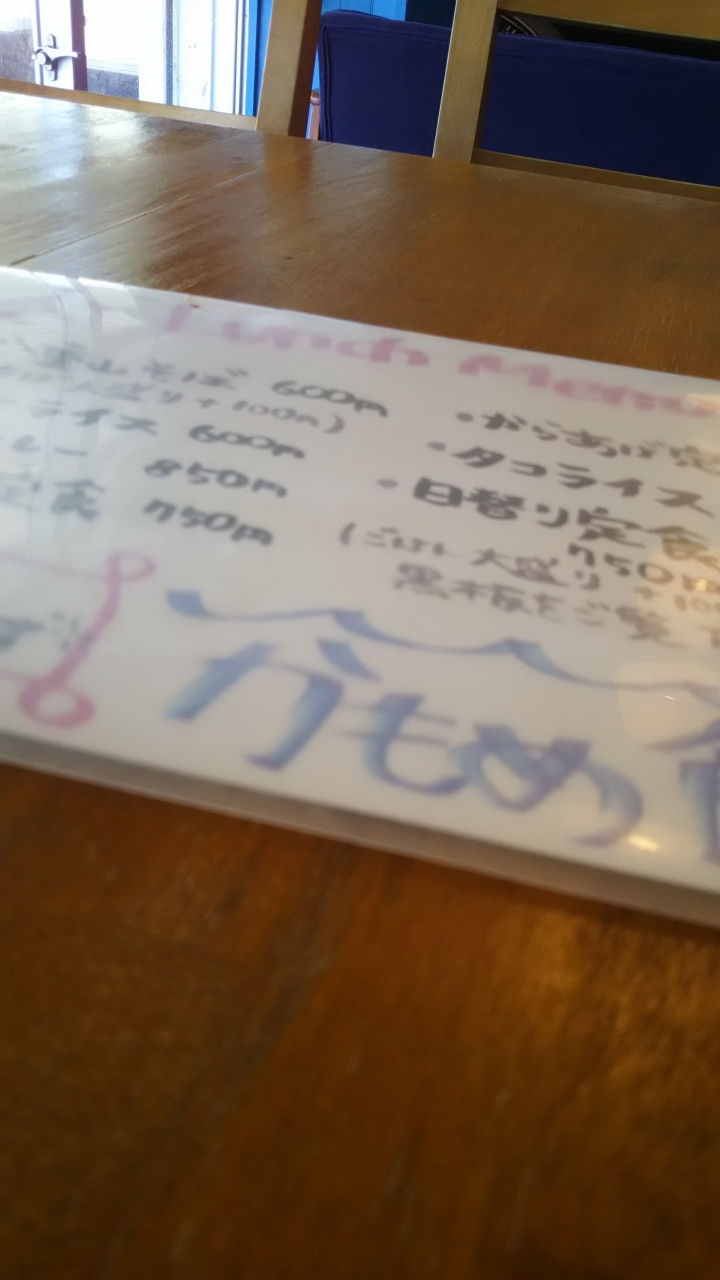 Lunch Menu
山そば 600円
大盛り+100円)
ライス 600円
レー 850円
定食 750円
・からあげ定
・タコライス
・日替り定食
750円
(ごはん大盛り+100
黒板をご覧
す
かもめ